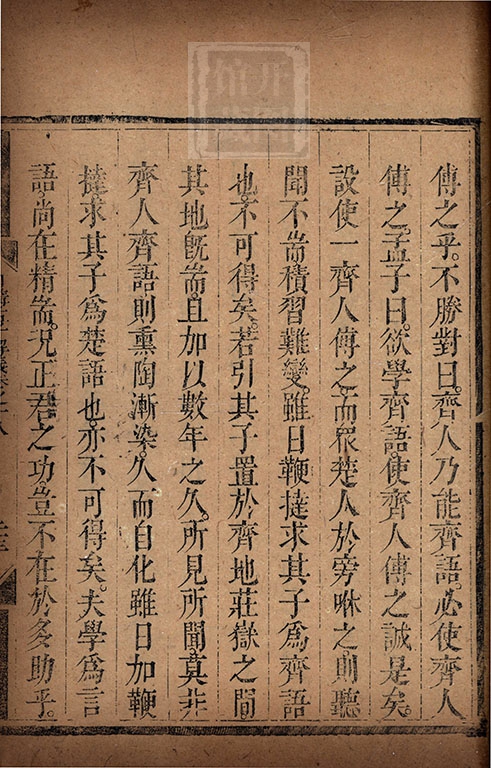 傅之乎。不勝對曰。齊人乃能齊語。必使齊人
傅之。孟子曰。欲學齊語。使齊人傅之誠是矣。
設使一齊人傅之。而衆楚人於旁咻之。則聽
聞不耑積習難變。雖日鞭撻求其子爲齊語
也。不可得矣。若引其子置於齊地莊嶽之間
其地旣耑。且加以數年之久。所見所聞莫非
齊人齊語則熏陶漸染。久而自化雖日加鞭
撻求其子爲楚語也。亦不可得矣。夫學爲言
語。尚在精耑。况正君之功。豈不在於多助乎。